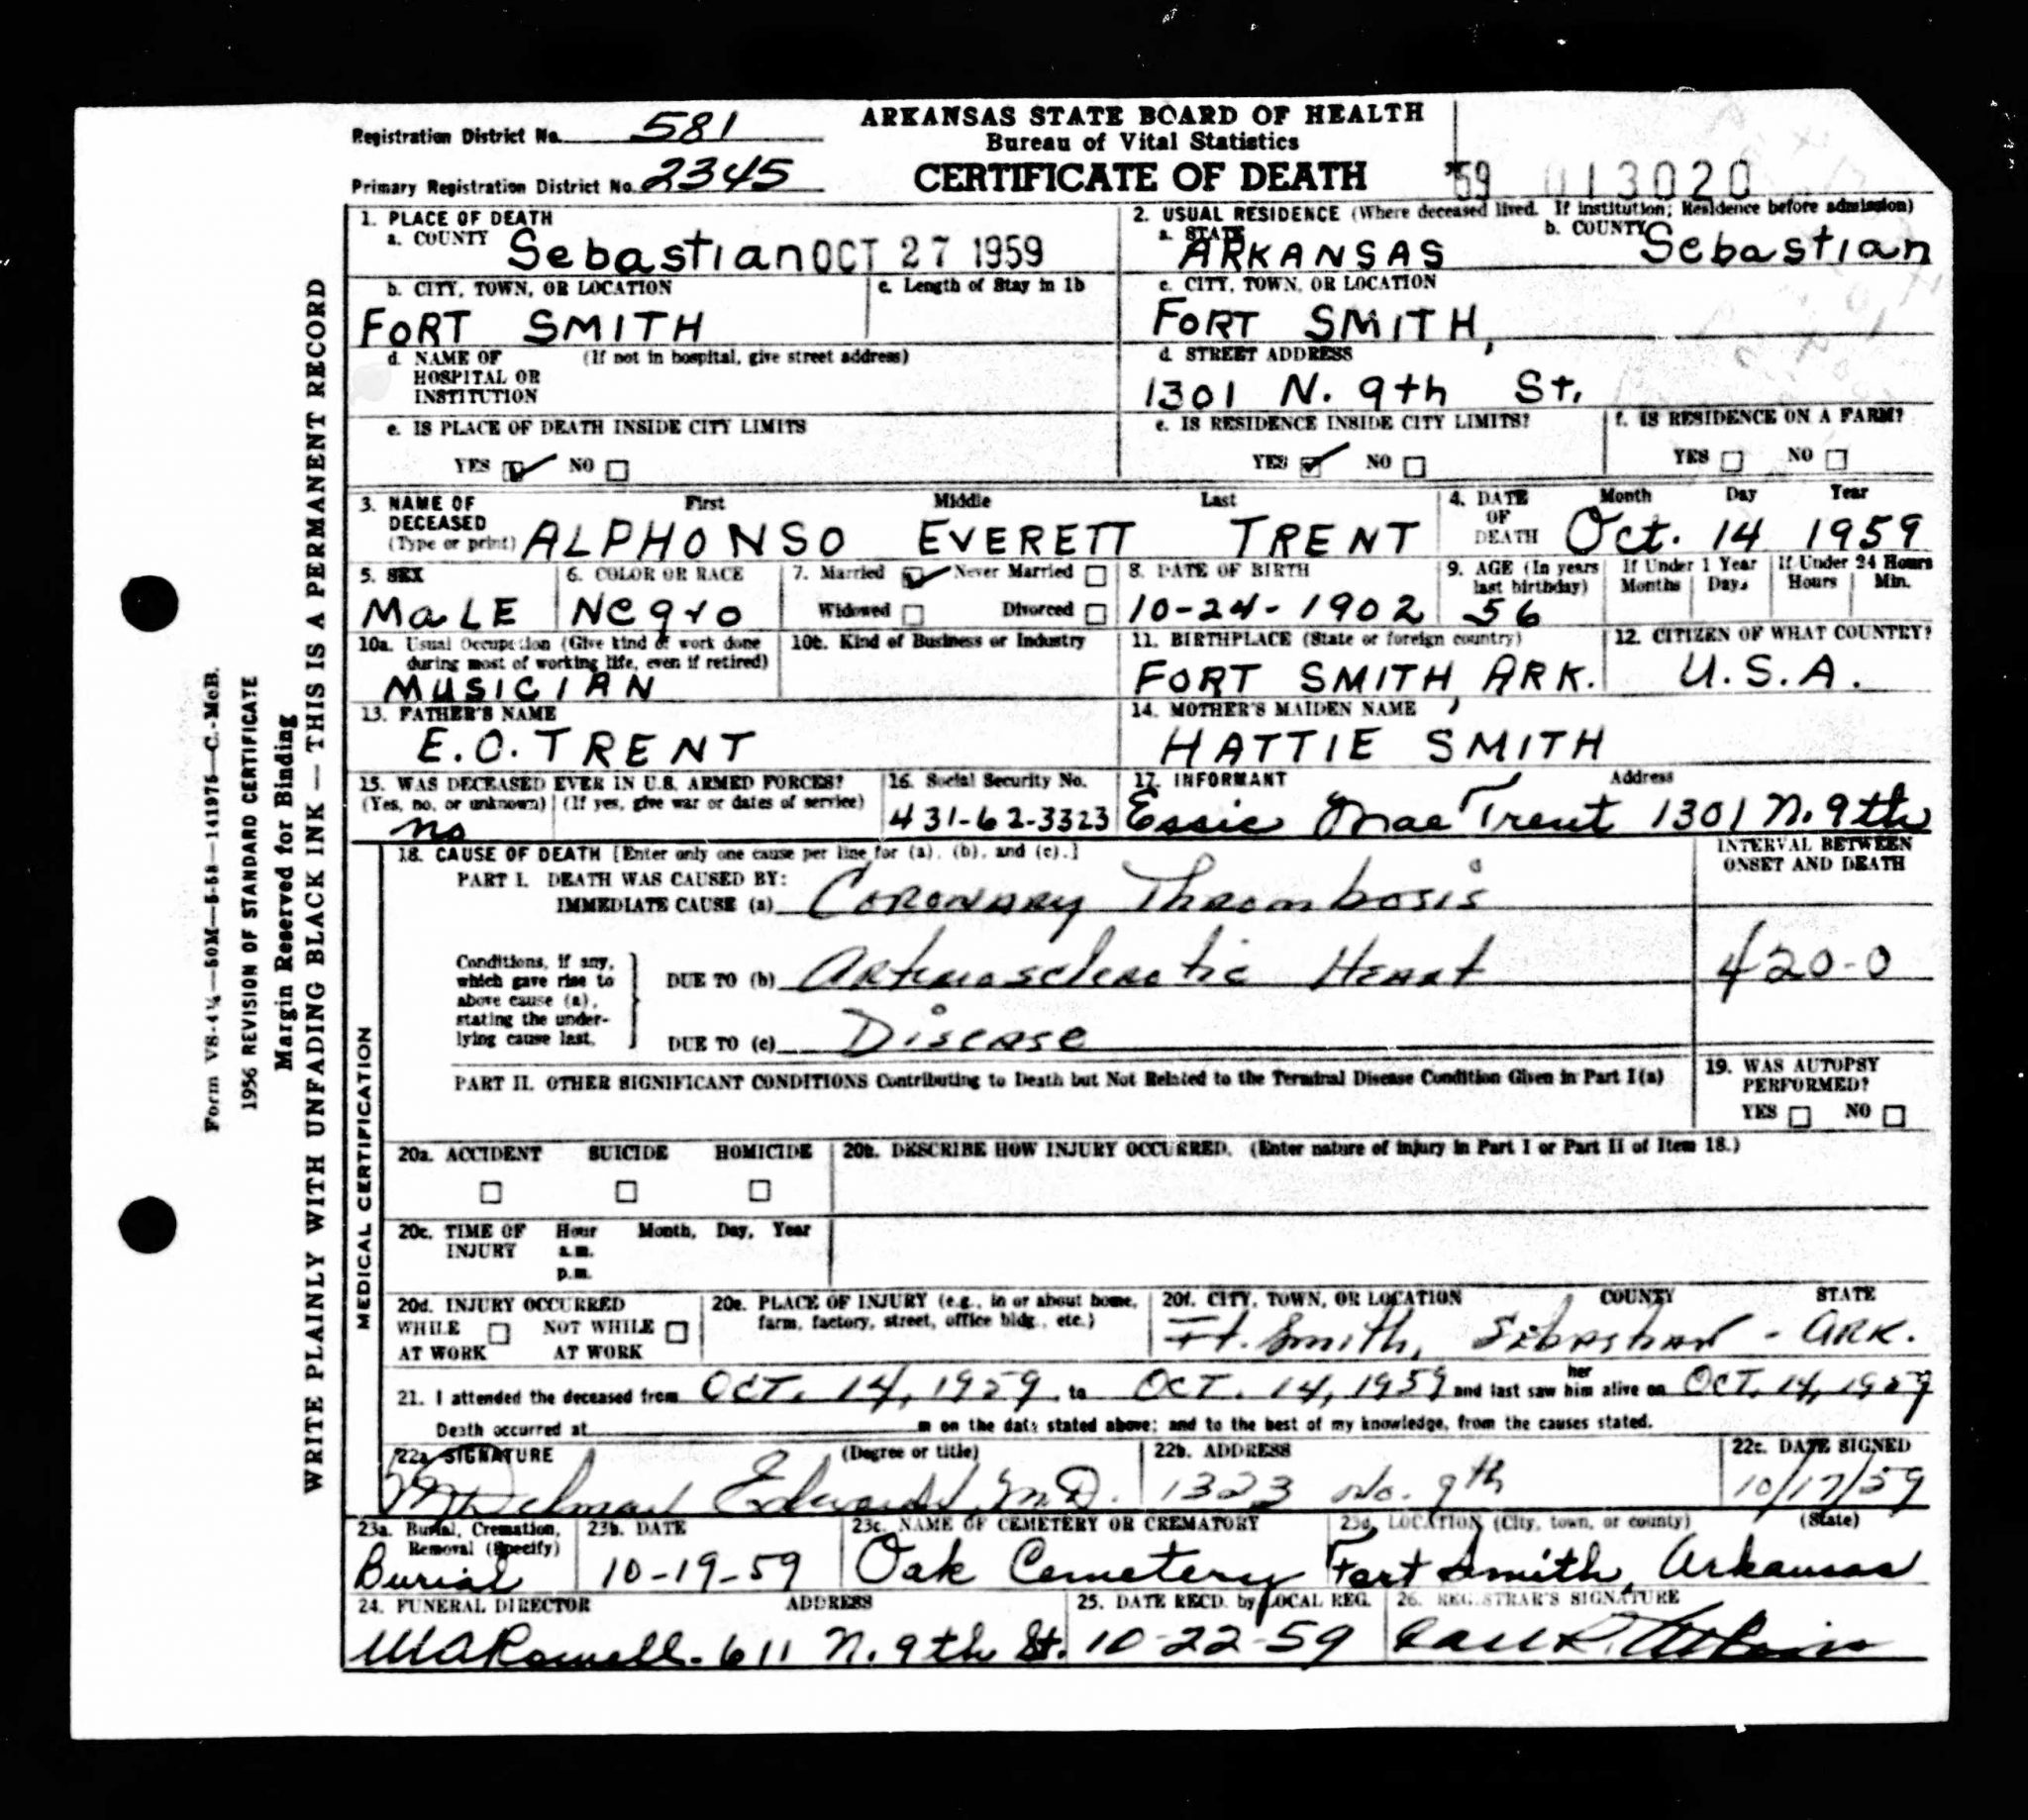 ARKANSAS STATE BOARD OF HEALTH
Bureau of Vital Statistics
CERTIFICATE OF DEATH
Registration District No. 581
Primary Registration District No. 2345
'59 013020
1. PLACE OF DEATH
a. COUNTY Sebastian OCT 27 1959
2. USUAL RESIDENCE (Where deceased lived. If institution; Residence before admission)
a. STATE ARKANSAS b. COUNTY Sebastian
b. CITY, TOWN, OR LOCATION FORT SMITH
c. Length of Stay in 1b
c. CITY, TOWN, OR LOCATION
FORT SMITH,
d. NAME OF HOSPITAL OR INSTITUTION (If not in hospital, give street address)
d. STREET ADDRESS
1301 N. 9th St.
e. IS PLACE OF DEATH INSIDE CITY LIMITS
YES ✓ NO
e. IS RESIDENCE INSIDE CITY LIMITS?
YES ✓ NO
f. IS RESIDENCE ON A FARM?
YES NO
3. NAME OF DECEASED (Type or print) First Middle Last
ALPHONSO EVERETT TRENT
4. DATE OF DEATH Month Day Year
Oct. 14 1959
5. SEX
MALE
6. COLOR OR RACE
Negro
7. Married ✓ Never Married
Widowed Divorced
8. DATE OF BIRTH
10-24-1902
9. AGE (In years last birthday)
56
If Under 1 Year Months Days
If Under 24 Hours Hours Min.
10a. Usual Occupation (Give kind of work done during most of working life, even if retired)
MUSICIAN
10b. Kind of Business or Industry
11. BIRTHPLACE (State or foreign country)
FORT SMITH, ARK.
12. CITIZEN OF WHAT COUNTRY?
U.S.A.
13. FATHER'S NAME
E.O. TRENT
14. MOTHER'S MAIDEN NAME
HATTIE SMITH
15. WAS DECEASED EVER IN U.S. ARMED FORCES?
(Yes, no, or unknown) (If yes, give war or dates of service)
no
16. Social Security No.
431-62-3323
17. INFORMANT Address
Essie Mae Trent 1301 N. 9th
18. CAUSE OF DEATH [Enter only one cause per line for (a), (b), and (c).]
INTERVAL BETWEEN ONSET AND DEATH
PART I. DEATH WAS CAUSED BY:
IMMEDIATE CAUSE (a) Coronary Thrombosis
Conditions, if any, which gave rise to above cause (a), stating the underlying cause last.
DUE TO (b) Arteriosclerotic Heart
420-0
DUE TO (c) Disease
PART II. OTHER SIGNIFICANT CONDITIONS Contributing to Death but Not Related to the Terminal Disease Condition Given in Part I(a)
19. WAS AUTOPSY PERFORMED?
YES NO
20a. ACCIDENT SUICIDE HOMICIDE
20b. DESCRIBE HOW INJURY OCCURRED. (Enter nature of injury in Part I or Part II of Item 18.)
20c. TIME OF INJURY Hour a.m. p.m. Month, Day, Year
20d. INJURY OCCURRED
WHILE AT WORK NOT WHILE AT WORK
20e. PLACE OF INJURY (e.g., in or about home, farm, factory, street, office bldg., etc.)
20f. CITY, TOWN, OR LOCATION COUNTY STATE
Ft. Smith, Sebastian - ARK.
21. I attended the deceased from OCT. 14, 1959 to OCT. 14, 1959 and last saw her him alive on OCT. 14, 1959
Death occurred at m on the date stated above; and to the best of my knowledge, from the causes stated.
22a. SIGNATURE (Degree or title)
Edwards, M.D.
22b. ADDRESS
1323 No. 9th
22c. DATE SIGNED
10/17/59
23a. Burial, Cremation, Removal (Specify)
Burial
23b. DATE
10-19-59
23c. NAME OF CEMETERY OR CREMATORY
Oak Cemetery
23d. LOCATION (City, town, or county) (State)
Fort Smith, Arkansas
24. FUNERAL DIRECTOR ADDRESS
611 N. 9th St.
25. DATE RECD. by LOCAL REG.
10-22-59
26. REGISTRAR'S SIGNATURE
MEDICAL CERTIFICATION
WRITE PLAINLY WITH UNFADING BLACK INK — THIS IS A PERMANENT RECORD
Margin Reserved for Binding
1956 REVISION OF STANDARD CERTIFICATE